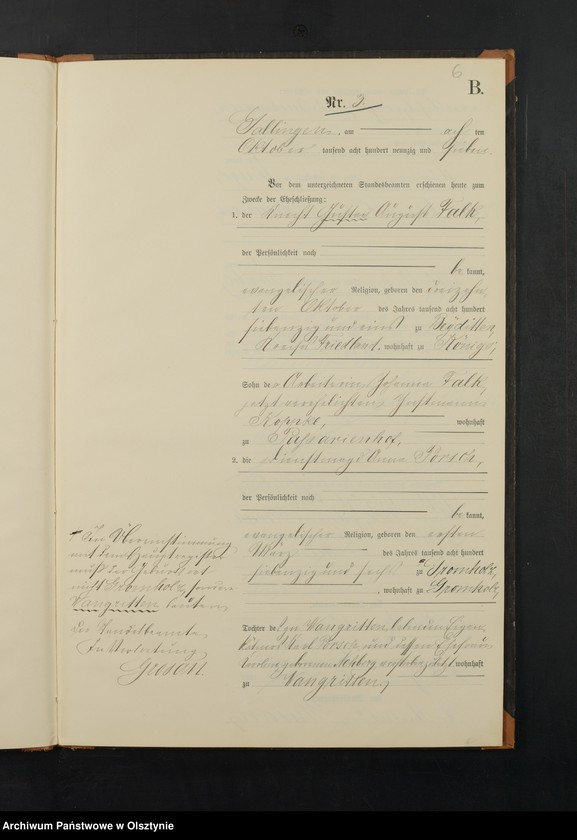 6
B.
Nr. 3
Gallingen, am acht ten
Oktober tausend acht hundert neunzig und sieben
Vor dem unterzeichneten Standesbeamten erschienen heute zum
Zwecke der Eheschließung:
1. der Knecht Gustav August Falk,
der Persönlichkeit nach
be kannt,
evangelischer Religion, geboren den dreizehn
ten Oktober des Jahres tausend acht hundert
siebenzig und eins zu
Kreises Friedland, wohnhaft zu
Sohn der Arbeiterin Johanna Falk,
jetzt verehelichten
wohnhaft
zu
2. die Dienstmagd Anna Porsch,
der Persönlichkeit nach
be kannt,
evangelischer Religion, geboren den ersten
März des Jahres tausend acht hundert
siebenzig und sechs zu Gromholz,
, wohnhaft zu Gromholz,
Tochter des zu Wangritten
Karl Porsch und dessen Ehefrau
geborenen wohnhaft
zu Wangritten,
In Übereinstimmung
mit dem Hauptregister
muß der Geburtsort
nicht Gromholz, sondern
Wangritten lauten.
Der Standesbeamte
In Vertretung
Archiwum Państwowe w Olsztynie